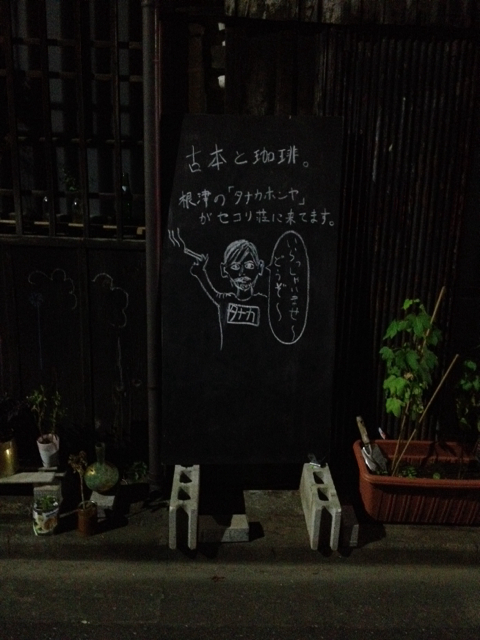 古本と珈琲。
根津の「タナカホンヤ」
がセコリ荘に来てます。
いらっしゃいませ〜
どうぞ〜
タナカ